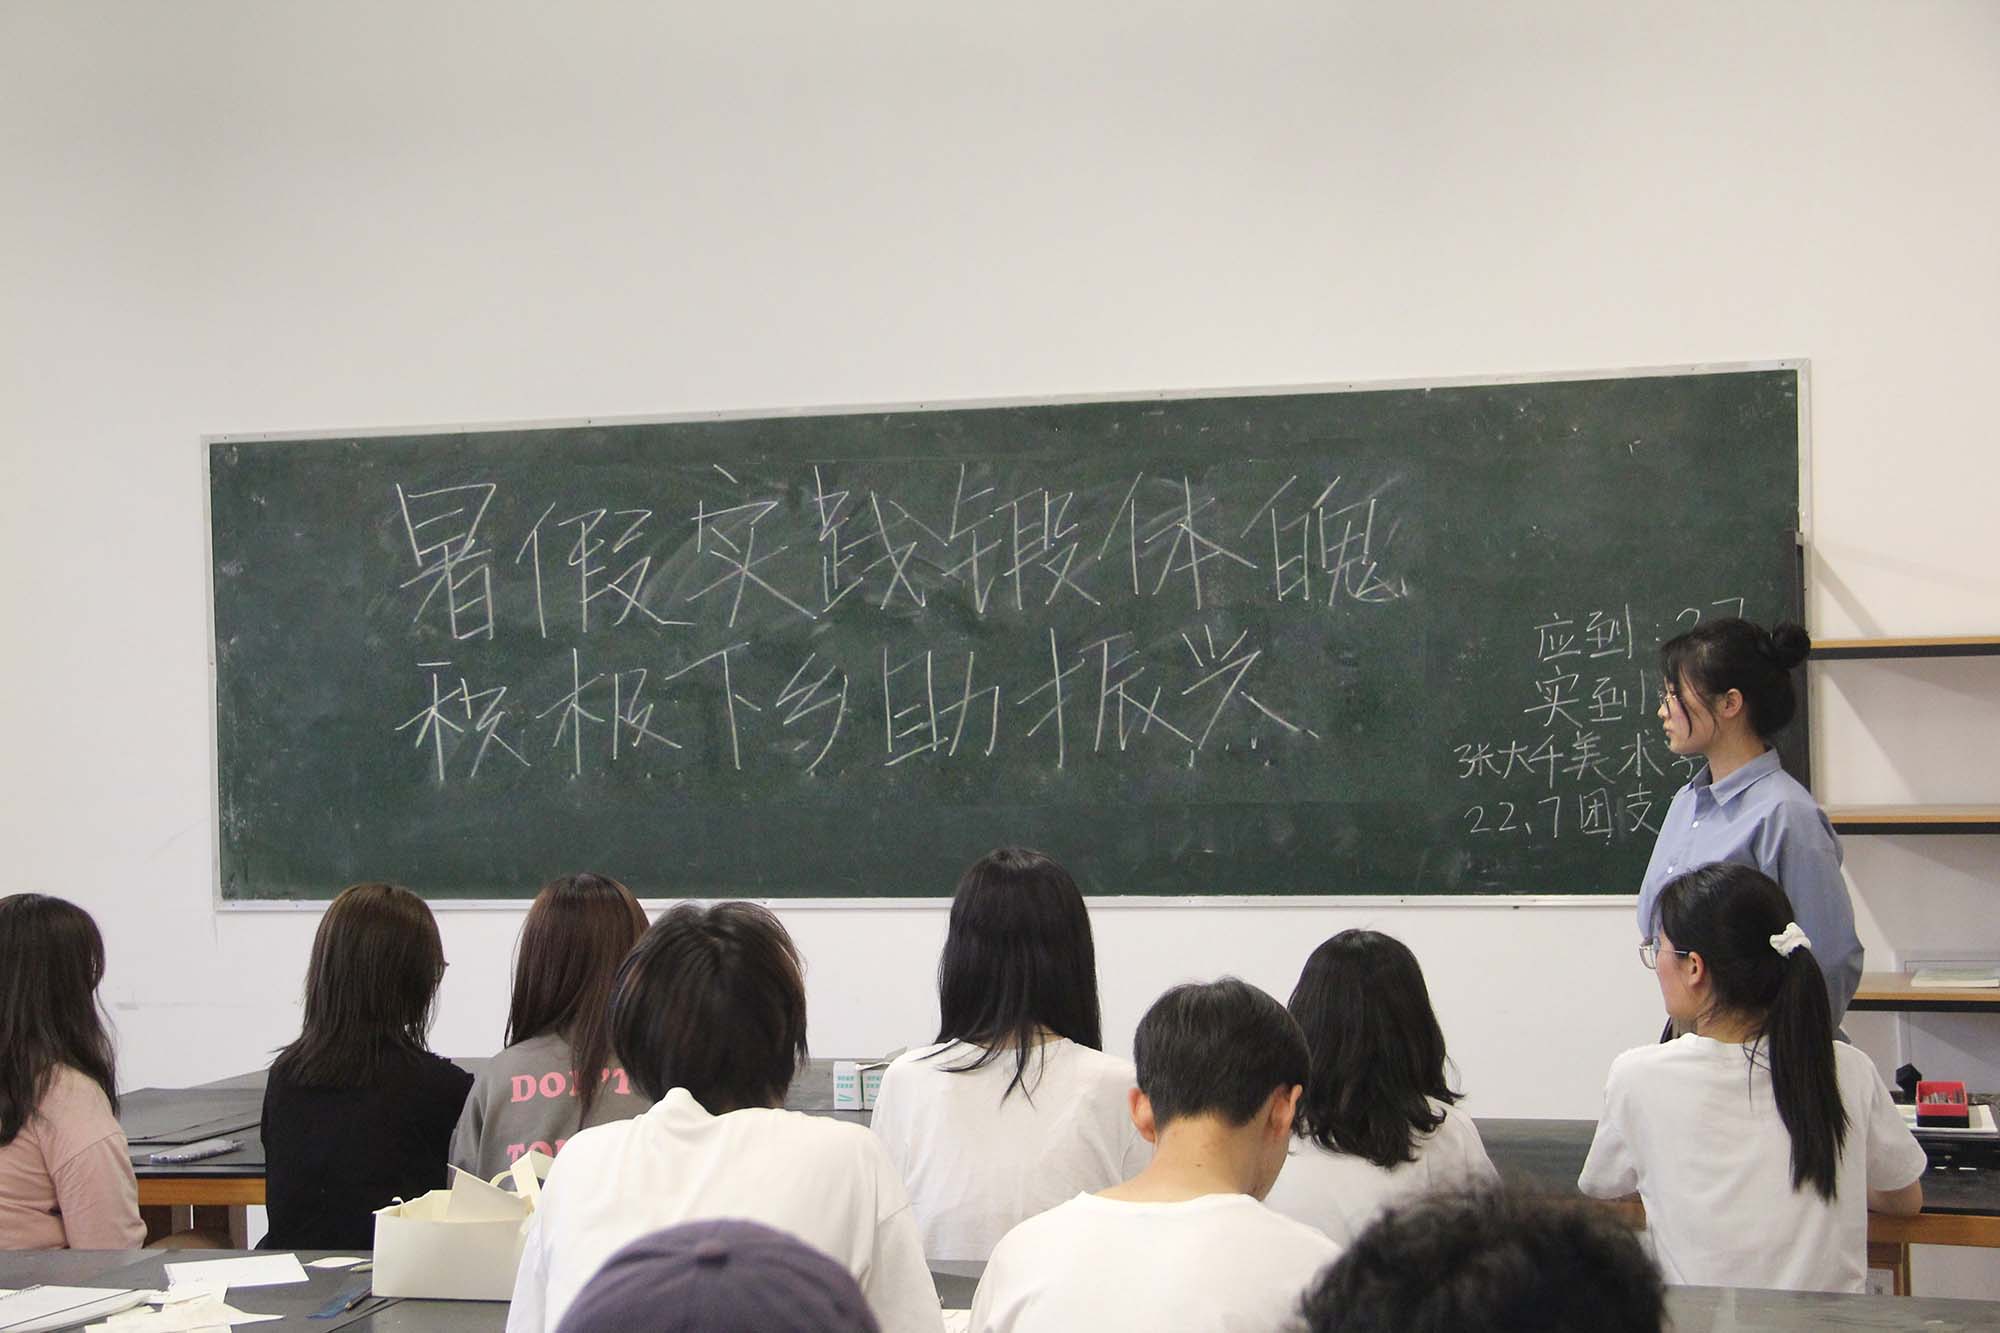 暑假实践锻体魄
积极下乡助振兴
应到:27
实到
张大千美术学
22.7团支
DON'T